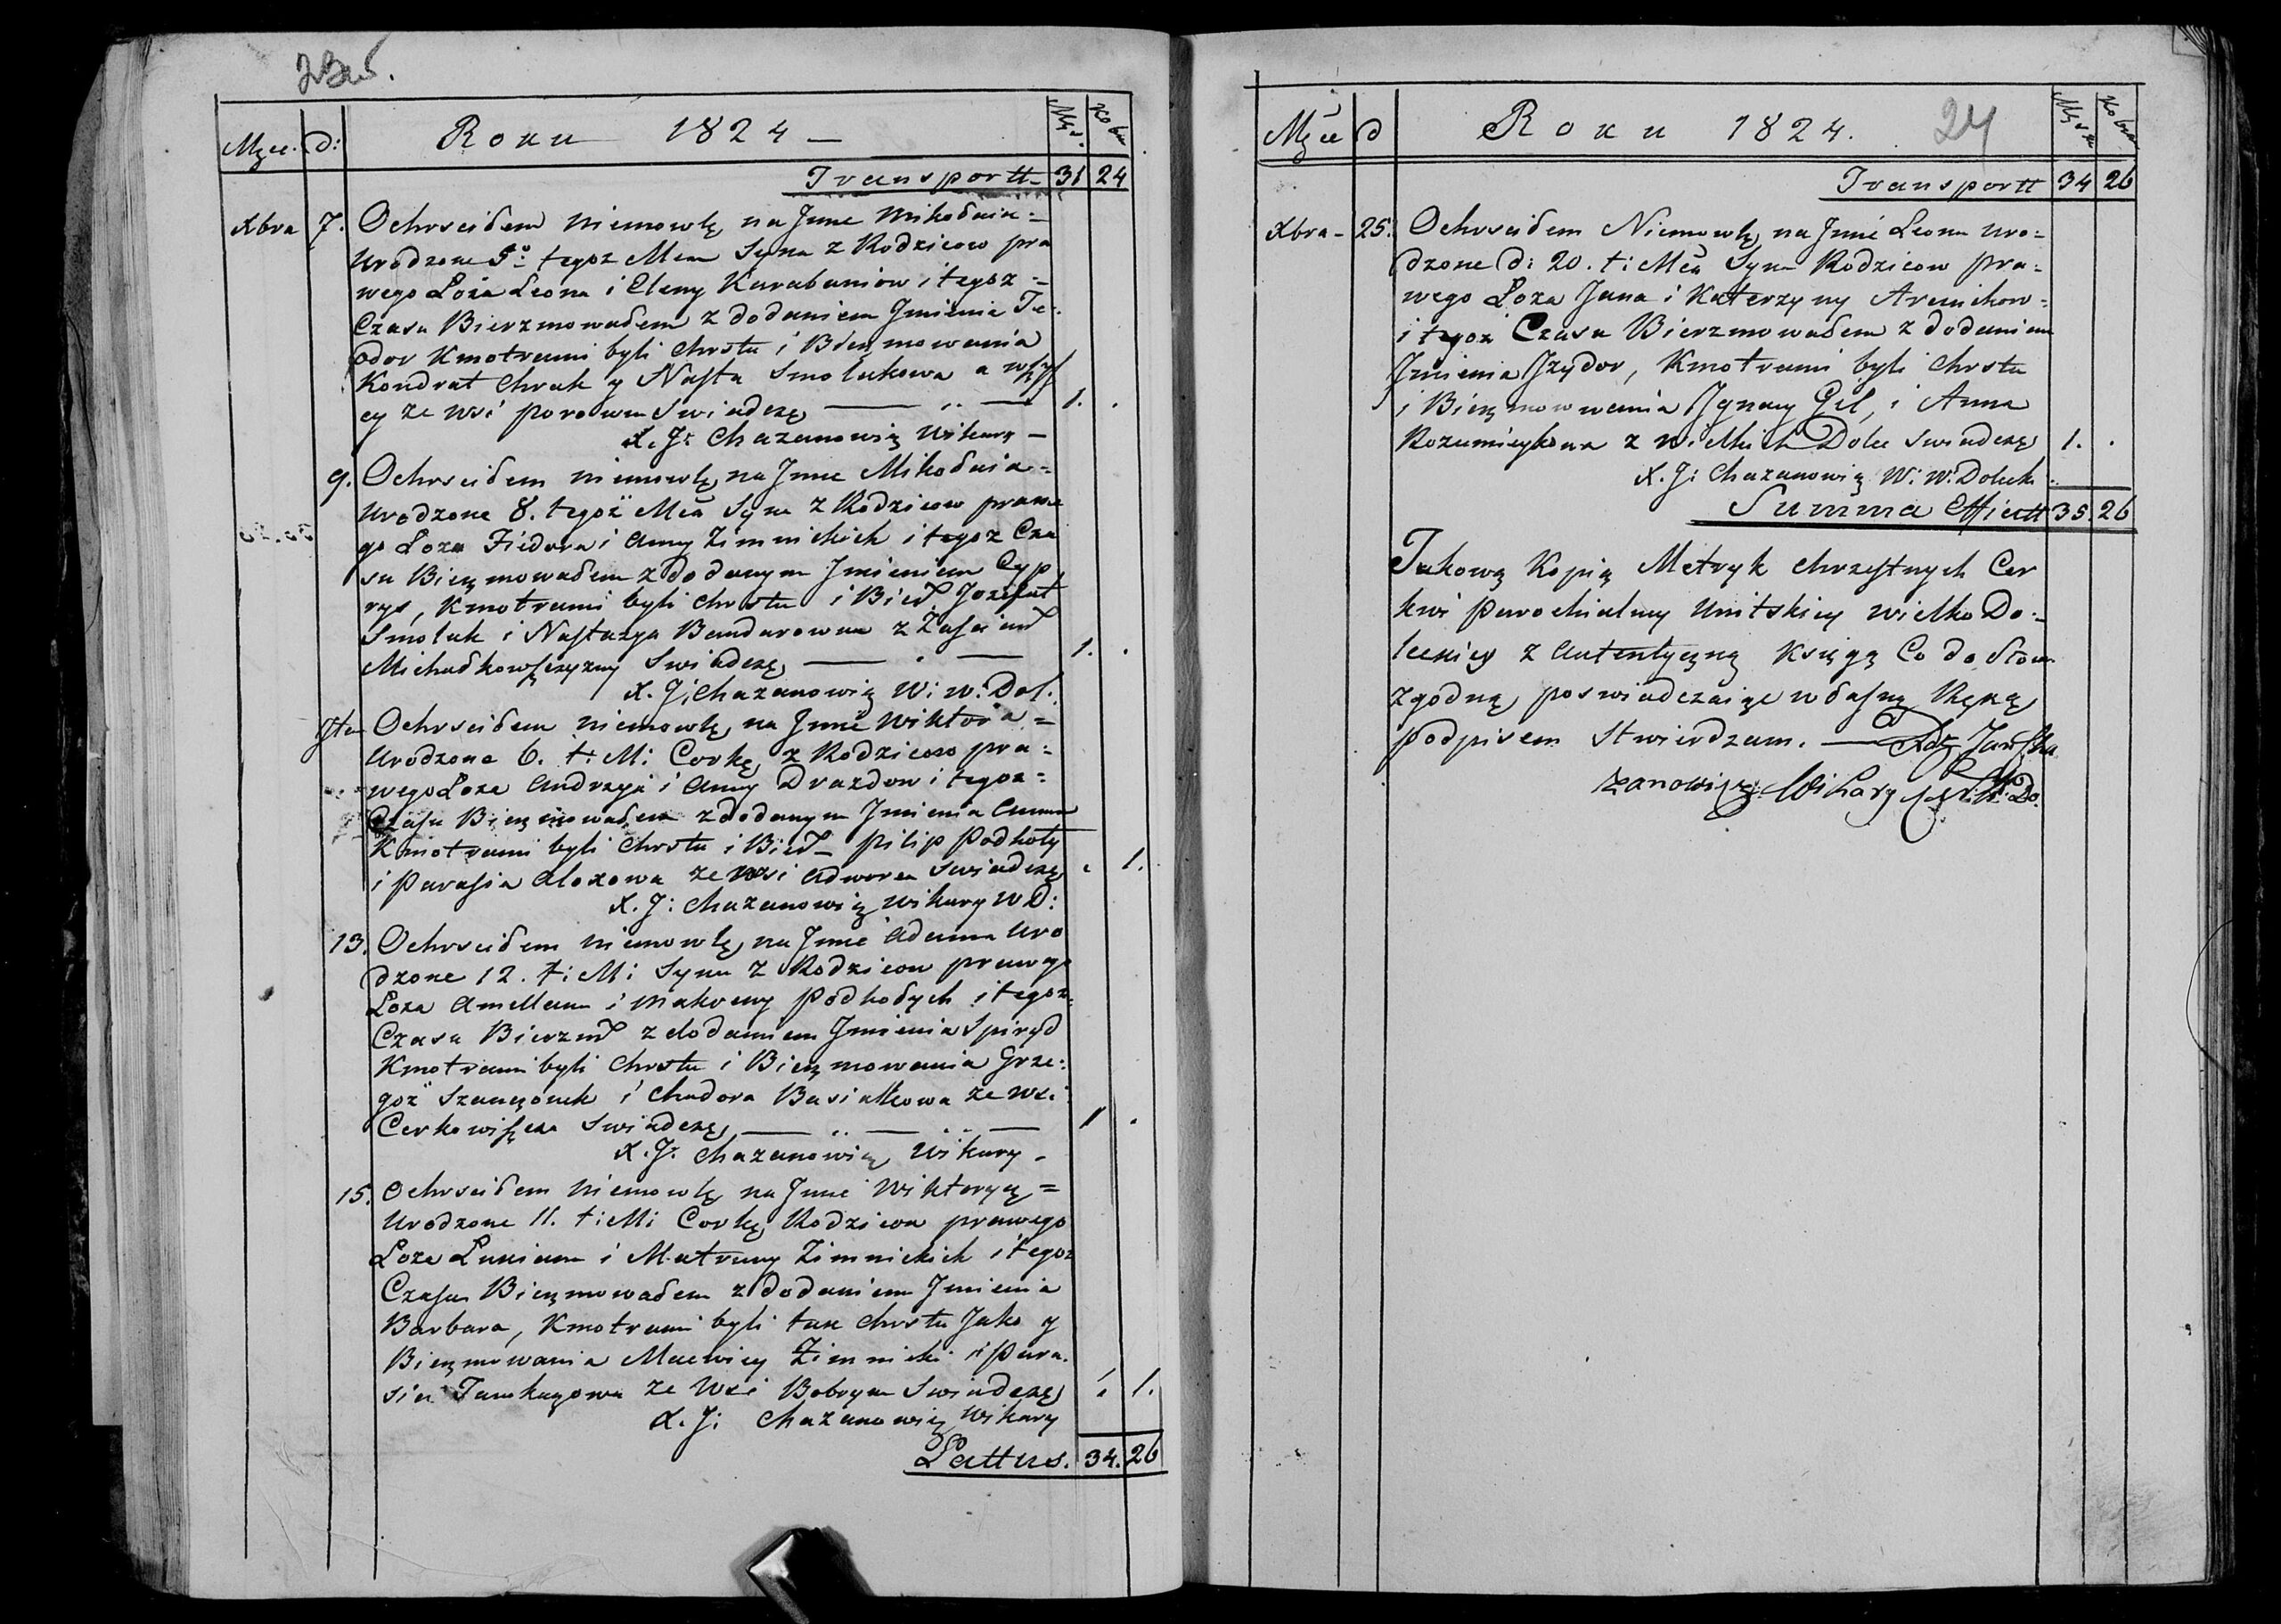 Mçe. d: Roku 1824 — Męs. Kobie
Transportt 31 24
Xbra 7. Ochrściłem niemowlę na Jmie Mikołaia =
urodzone 5º tegoż Mca Syna z Rodzicow pra
wego Łoża Leona i Eleny Karabaniow i tegoż =
Czasu Bierzmowałem z dodaniem Jmienia Te:
odor Kmotrami byli Chrstu i Bierzmowania
Kondrat Chruk y Nasta Smolukowa a wszys
cy ze Wsi Porowa Swiadczę 1. .
X. J: Chazanowicz Wikary —
9. Ochrściłem niemowlę na Jmie Mikołaia =
urodzone 8. tegoż Mca Syna z Rodzicow prawe
go Łoza Fiedora i Anny Zimnickich i tegoz Cza
su Bierzmowałem z dodanym Jmieniem Cyp
ryś, Kmotrami byli Chrstu i Bierz Jozefat
Smoluk i Nastazya Bandurowna z Zaścian
Michałkowszczyzny Swiadczę 1. .
X. J: Chazanowicz W: W: Dol.
Ochrściłem niemowlę na Jmie Wiktoria =
urodzone 6. t: M: Corkę z Rodzicow pra =
wego Łoza Andrzya i Anny Drazdow i tegoz =
Czasu Bierzmowałem z dodanym Jmienia Anna
Kmotrami byli Chrstu i Bierz — Pilip Podhoły
i Parasia ze Wsi Adworca Swiadczę . 1.
X. J: Chazanowicz Wikary W D:
13. Ochrściłem niemowlę na Jmie Adama uro
dzone 12. t: M: Syna z Rodzicow prawego
Łoza Amellana i Makreny Podhołych i tegoz =
Czasu Bierzm z dodaniem Jmienia Spiryd
Kmotrami byli Chrstu i Bierzmowania Grze:
goż i Chudora ze Wsi
Cerkowiszcza Swiadczę 1 .
X. J: Chazanowicz Wikary —
15. Ochrściłem niemowlę na Jmie Wiktoryę =
urodzone 11. t: M: Corkę Rodzicow prawego
Łoza Lukiana i Matruny Zimnickich i tegoz
Czasu Bierzmowałem z dodaniem Jmienia
Barbara, Kmotrami byli tak Chrstu Jako y
Bierzmowania Maciey Zimnicki i Para
sia ze Wsi Swiadczę . 1.
X. J: Chazanowicz Wikary
Lattus. 34. 26
Mçe d Roku 1824. 24 Męsk Kobie
Transportt 34 26
Xbra — 25. Ochrściłem Niemowlę na Jmie Leona uro =
dzone d: 20. t: Mca Syna Rodzicow pra =
wego Łoza Jana i Katerzyny =
i tegoz Czasu Bierzmowałem z dodaniem
Jmienia Jzydor, Kmotrami byli Chrstu
i Bierzmowania Jgnacy Gil, i Anna
z Wielkich Dolec Swiadczę 1. .
X. J: Chazanowicz W: W: Doleck
Summa Efficitt 35. 26
Takową Kopią Metryk Chrzestnych Cer
kwi Parochialney Unitskiey Wielko Do =
leckiey z Autentyczną Księgą Co do Słowa
zgodną poswiadczaiąc własną Ręką
podpisem Stwierdzam. — Xdz Jan Cha
zanowicz Wikary W. Do.